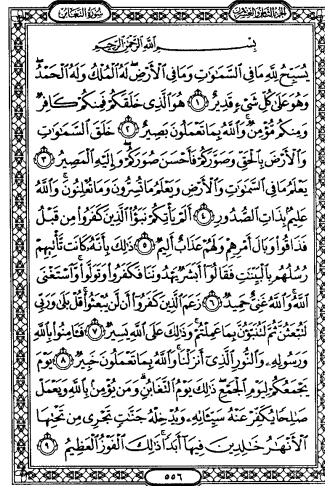 سورة التغابن
الجزء الثامن والعشرون
بسم الله الرحمن الرحيم
يسبح لله ما في السموات وما في الأرض له الملك وله الحمد
وهو على كل شيء قدير ١ هو الذي خلقكم فمنكم كافر
ومنكم مؤمن والله بما تعملون بصير ٢ خلق السموات
والأرض بالحق وصوركم فأحسن صوركم وإليه المصير ٣
يعلم ما في السموات والأرض ويعلم ما تسرون وما تعلنون والله
عليم بذات الصدور ٤ ألم يأتكم نبؤا الذين كفروا من قبل
فذاقوا وبال أمرهم ولهم عذاب أليم ٥ ذلك بأنه كانت تأتيهم
رسلهم بالبينت فقالوا أبشر يهدوننا فكفروا وتولوا واستغنى
الله والله غني حميد ٦ زعم الذين كفروا أن لن يبعثوا قل بلى وربي
لتبعثن ثم لتنبؤن بما عملتم وذلك على الله يسير ٧ فآمنوا بالله
ورسوله والنور الذي أنزلنا والله بما تعملون خبير ٨ يوم
يجمعكم ليوم الجمع ذلك يوم التغابن ومن يؤمن بالله ويعمل
صالحا يكفر عنه سيئاته ويدخله جنت تجري من تحتها
الأنهر خلدين فيها أبدا ذلك الفوز العظيم ٩
٥٥٦